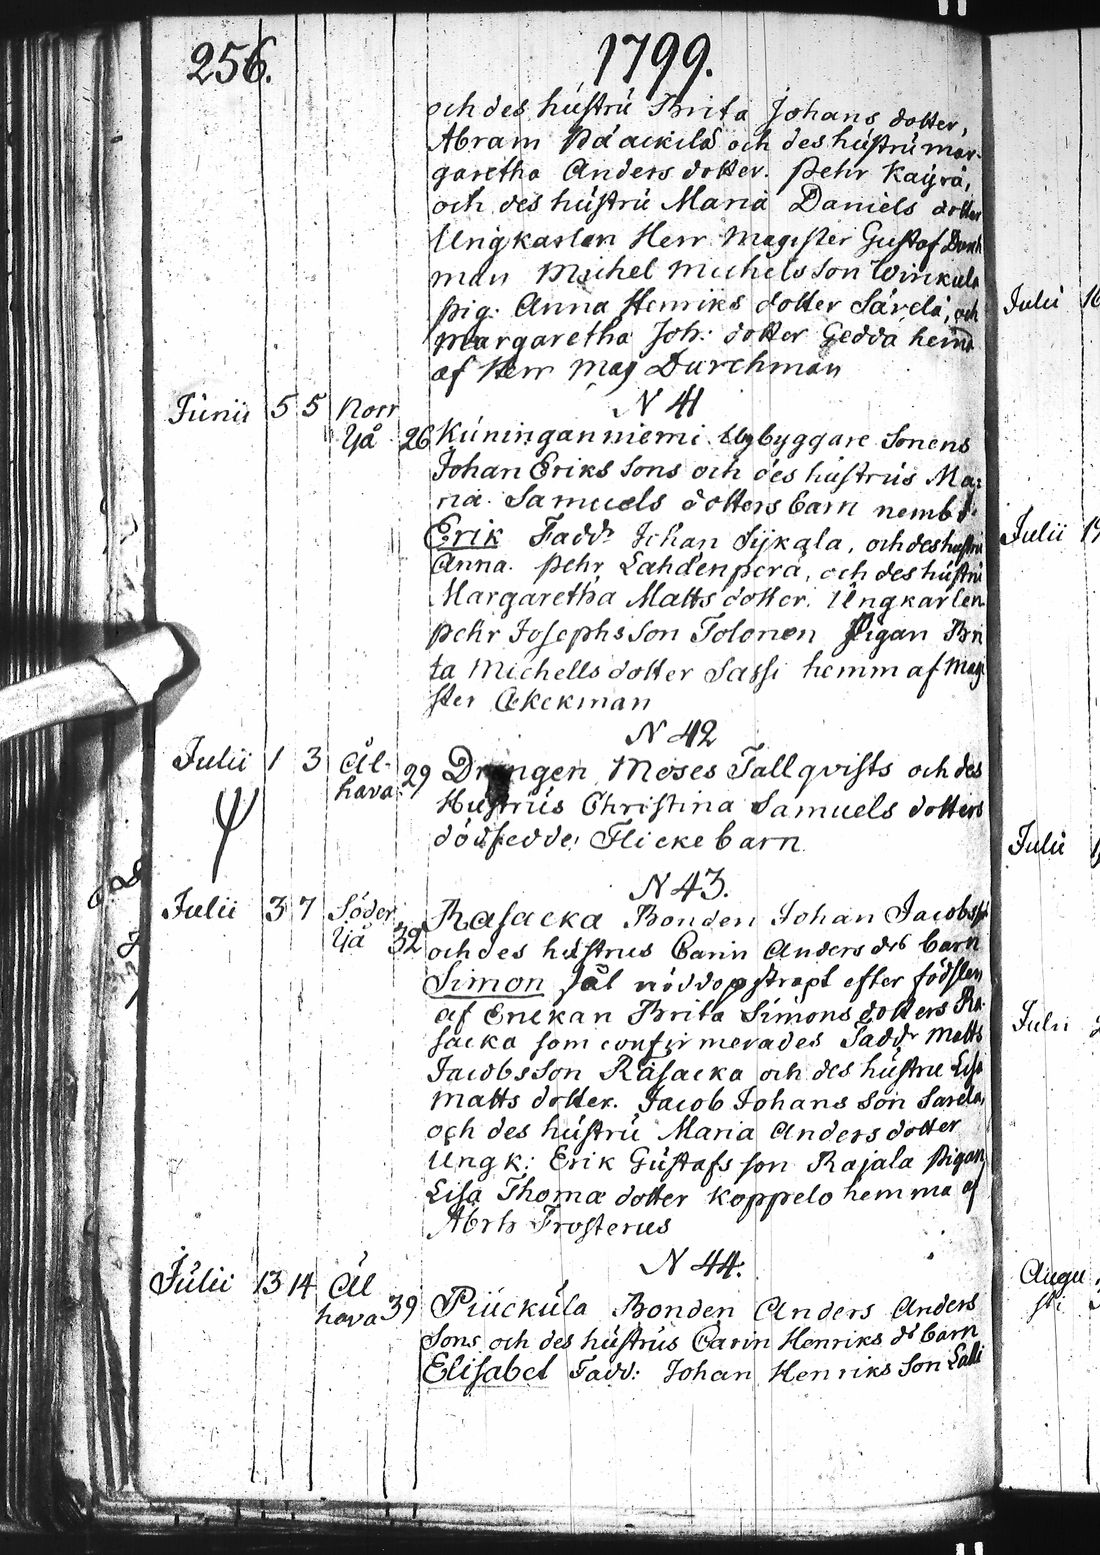 256. 1799.
och des hustru Brita Johans dotter,
Abram Pääckilä och des hustru mar-
garetha Anders dotter. Pehr Kaÿrä,
och des hustru Maria Daniels dotter
Ungkarlen Herr Magister Gustaf Durch
man Michel Michels Son Winkula
pig: Anna Henriks dotter Särelä, och
Margaretha Joh: dotter Gedda hema
af Herr Mag Durchman
N 41
Junii 5 5 Norr Ijå 26 Kuninganniemi nybyggare Sonens
Johan Eriks Sons och des hustrus Ma:
ria Samuels dotters barn nembd:
Erik Fadd: Johan Sijkala, och des hustru
Anna. Pehr Lahdenperä, och des hustru
Margaretha Matts dotter. Ungkarlen
Pehr Josephs Son Tolonen Pigan Bri
ta Michells dotter Sassi hemm af Magi
ster Ekekman
N 42
Julii 1 3 Ål-hava 29 Drengen Moses Tallqvists och des
Hustrus Christina Samuels dotters
dödfedde Flickebarn
N 43.
Julii 3 7 Söder Ijå 32 Räsacka Bonden Johan Jacobss:
och des hustrus Carin Anders drs barn
Simon såt nöddöpstrapt efter födslen
af Enckan Brita Simons dotters Rä
sacka som confirmerades Fadd: Matts
Jacobs Son Räsacka och des hustru Lisa
Matts dotter. Jacob Johans Son Särelä,
och des hustru Maria Anders dotter
Ungk: Erik Gustafs son Rajala Pigan
Lisa Thomæ dotter Koppelo hemma af
Abrh Frosterus
N 44.
Julii 13 14 Ål hava 39 Piuckula Bonden Anders Anders
Sons och des hustrus Carin Henriks ds barn
Elisabet Fadd: Johan Henriks Son Lalli
Julii 16
Julii
Julii
Julii
Augu
sti